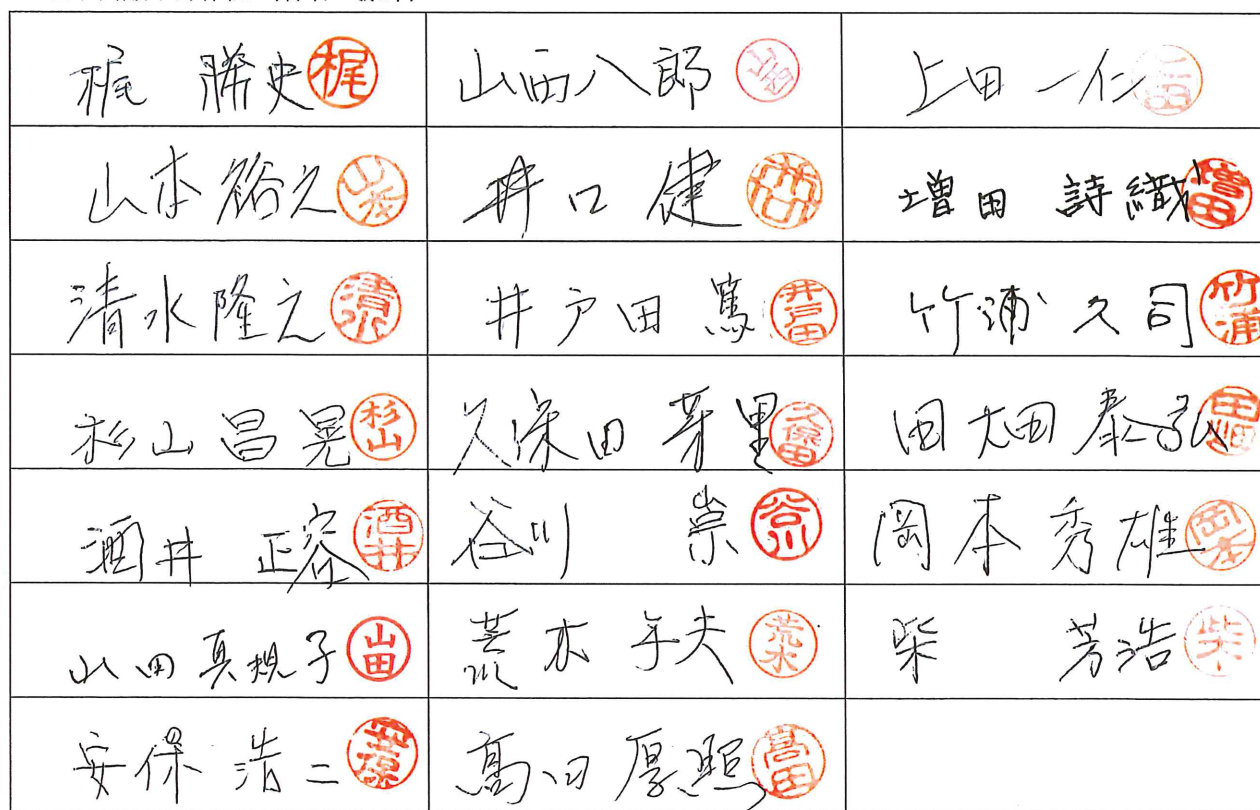 梶 勝史 梶 山西八郎 山西 上田 一仁 上田
山本裕之 山本 井口 健 井口 増田 詩織 増田
清水隆之 清水 井戸田 篤 井戸田 竹浦 久司 竹浦
杉山昌晃 杉山 久保田 芽里 久保田 田太田 泰弘
酒井 正容 酒井 谷川 崇 谷川 岡本秀雄 岡本
山田真規子 山田 荒木 年夫 荒木 柴 芳浩 柴
安保 浩二 安保 髙田厚照 髙田